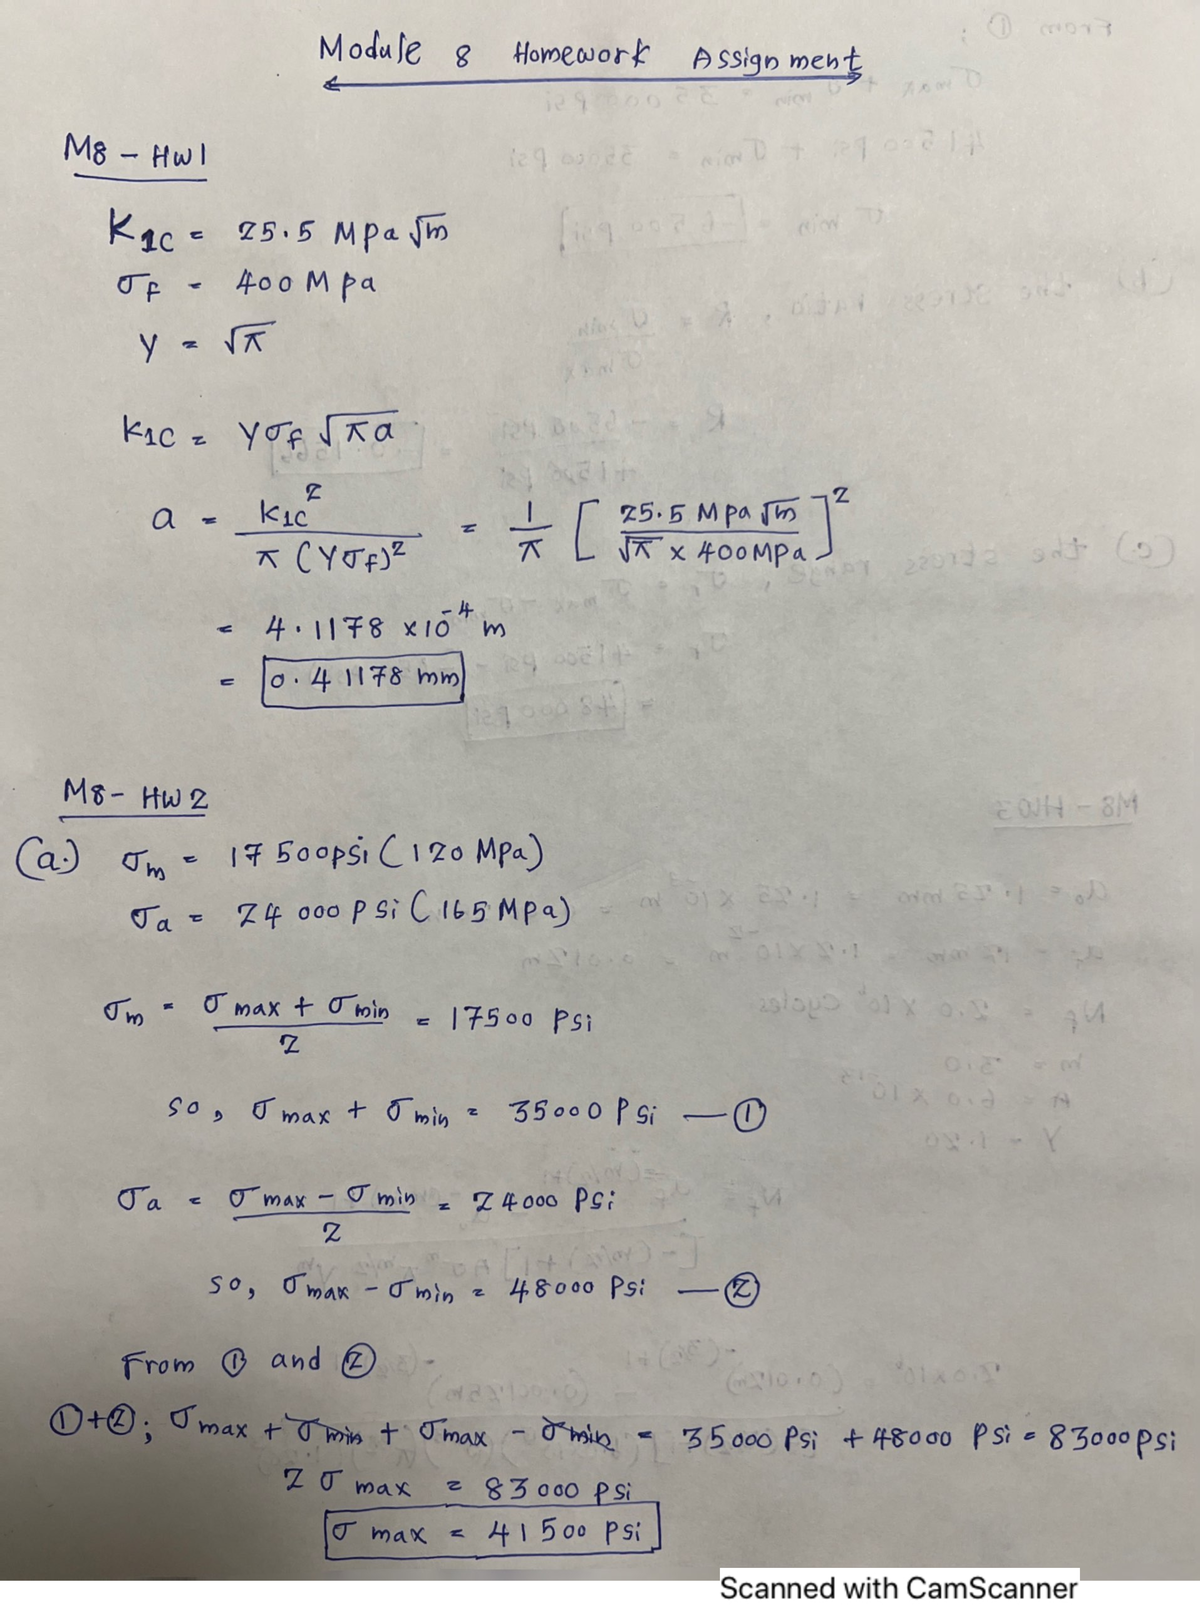 Module 8 Homework Assignment
M8 - HW1
K1C = 25.5 Mpa √m
σf = 400 Mpa
Y = √π
K1C = Yσf √πa
a = K1C² / π (Yσf)² = 1/π [ 25.5 Mpa √m / √π x 400 MPa ]²
= 4.1178 x10⁻⁴ m
= 0.41178 mm
M8 - HW2
(a.) σm = 17500psi (120 Mpa)
σa = 24000 Psi (165 MPa)
σm = σmax + σmin / 2 = 17500 Psi
so, σmax + σmin = 35000 Psi — ①
σa = σmax - σmin / 2 = 24000 Psi
so, σmax - σmin = 48000 Psi — ②
From ① and ②
①+②; σmax + σmin + σmax - σmin = 35000 Psi + 48000 Psi = 83000psi
2 σmax = 83000 psi
σmax = 41500 Psi
Scanned with CamScanner